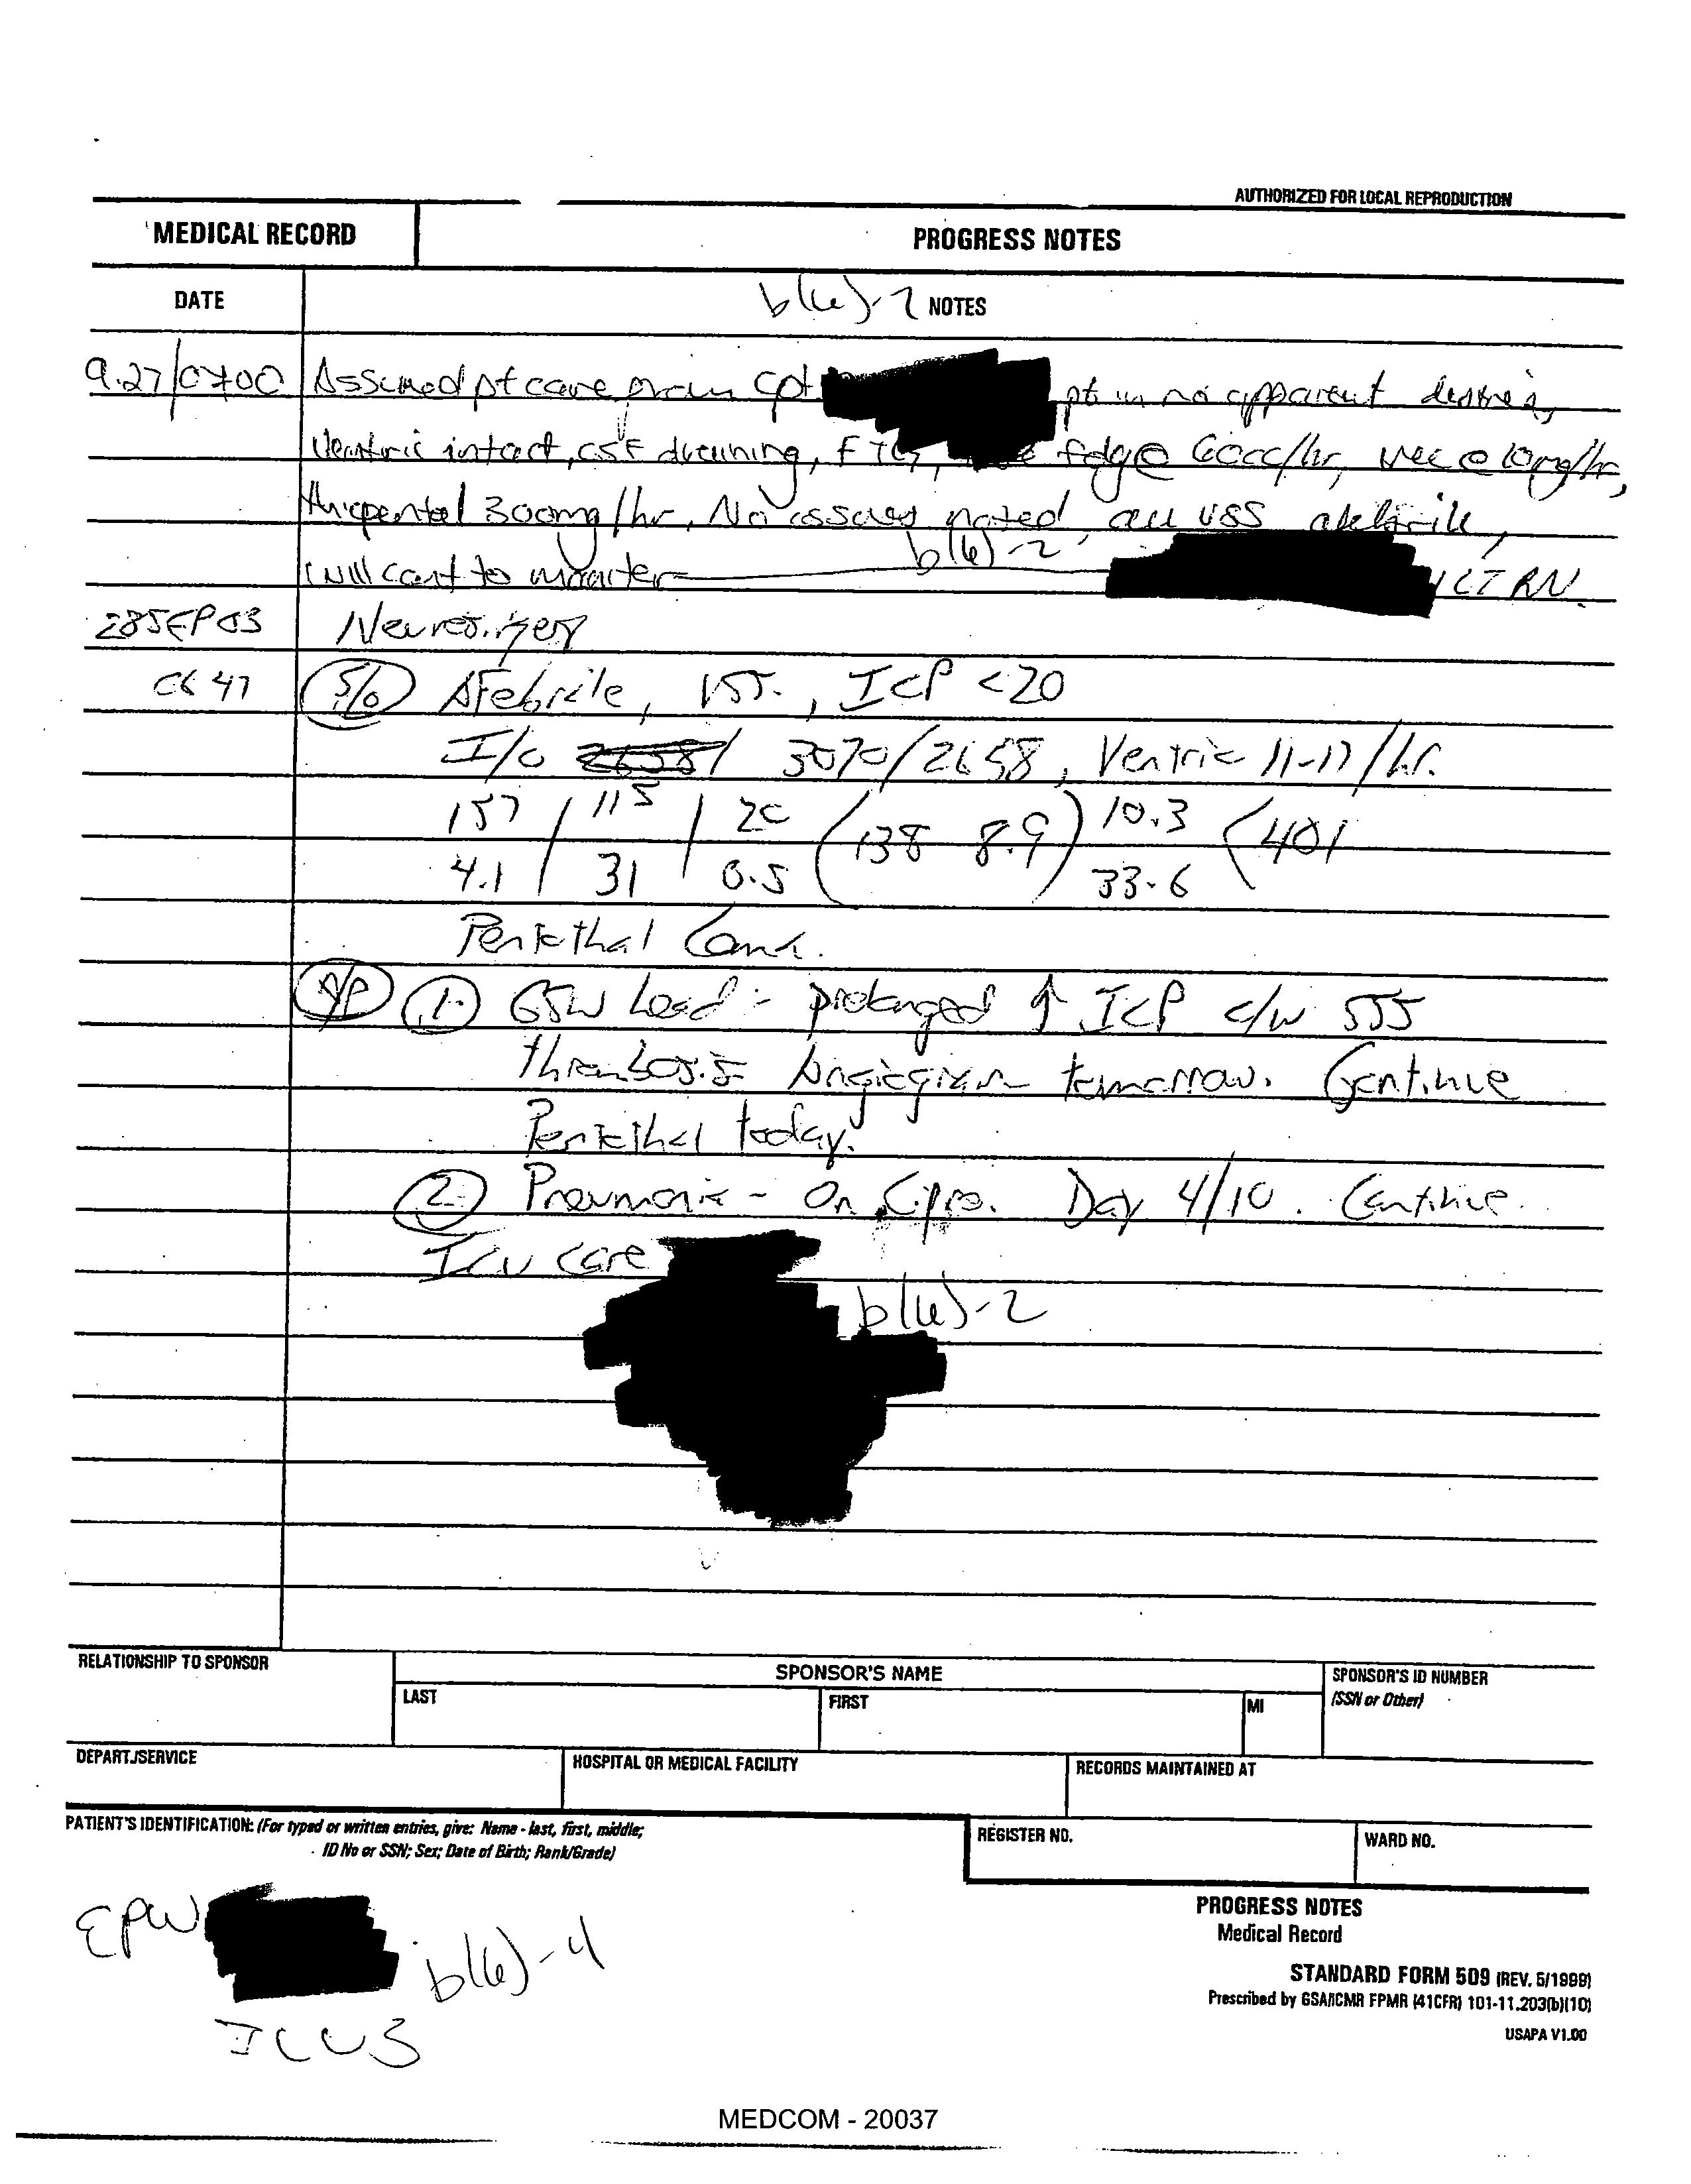 AUTHORIZED FOR LOCAL REPRODUCTION
MEDICAL RECORD
PROGRESS NOTES
DATE
b(6)-2 NOTES
9.27/0700 Assumed pt care from Cpt pt in no apparent distress,
Ventric intact, CSF draining, @ 60cc/hr, vec @ 10mg/hr,
thiopental 300mg/hr, No issues noted, all VSS afebrile,
b(6)-2
will cont to monitor LT RN.
28SEP03 Neurosurgery
0647 S/O Afebrile, VSS., ICP <20
I/O 3070/2658, Ventric 11-17/hr.
157 / 115 / 20 ( 138 8.9 ) 10.3 ( 401
4.1 / 31 / 0.5 33.6
Pentothal Coma.
A/P 1. GSW Head - prolonged ↑ ICP c/w SSS
thrombosis Angiogram tomorrow. Continue
Pentothal today.
2. Pneumonia - On Cipro. Day 4/10. Continue
ICU care
b(6)-2
RELATIONSHIP TO SPONSOR
SPONSOR'S NAME
SPONSOR'S ID NUMBER
(SSN or Other)
LAST
FIRST
MI
DEPART./SERVICE
HOSPITAL OR MEDICAL FACILITY
RECORDS MAINTAINED AT
PATIENT'S IDENTIFICATION: (For typed or written entries, give: Name - last, first, middle;
ID No or SSN; Sex; Date of Birth; Rank/Grade)
REGISTER NO.
WARD NO.
EPW b(6)-4
ICU3
PROGRESS NOTES
Medical Record
STANDARD FORM 509 (REV. 5/1999)
Prescribed by GSA/ICMR FPMR (41CFR) 101-11.203(b)(10)
USAPA V1.00
MEDCOM - 20037